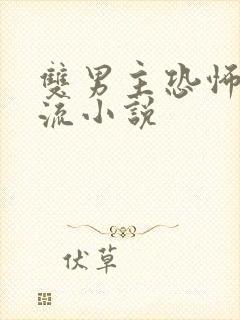 雙男主恐怖
流小說
伏草